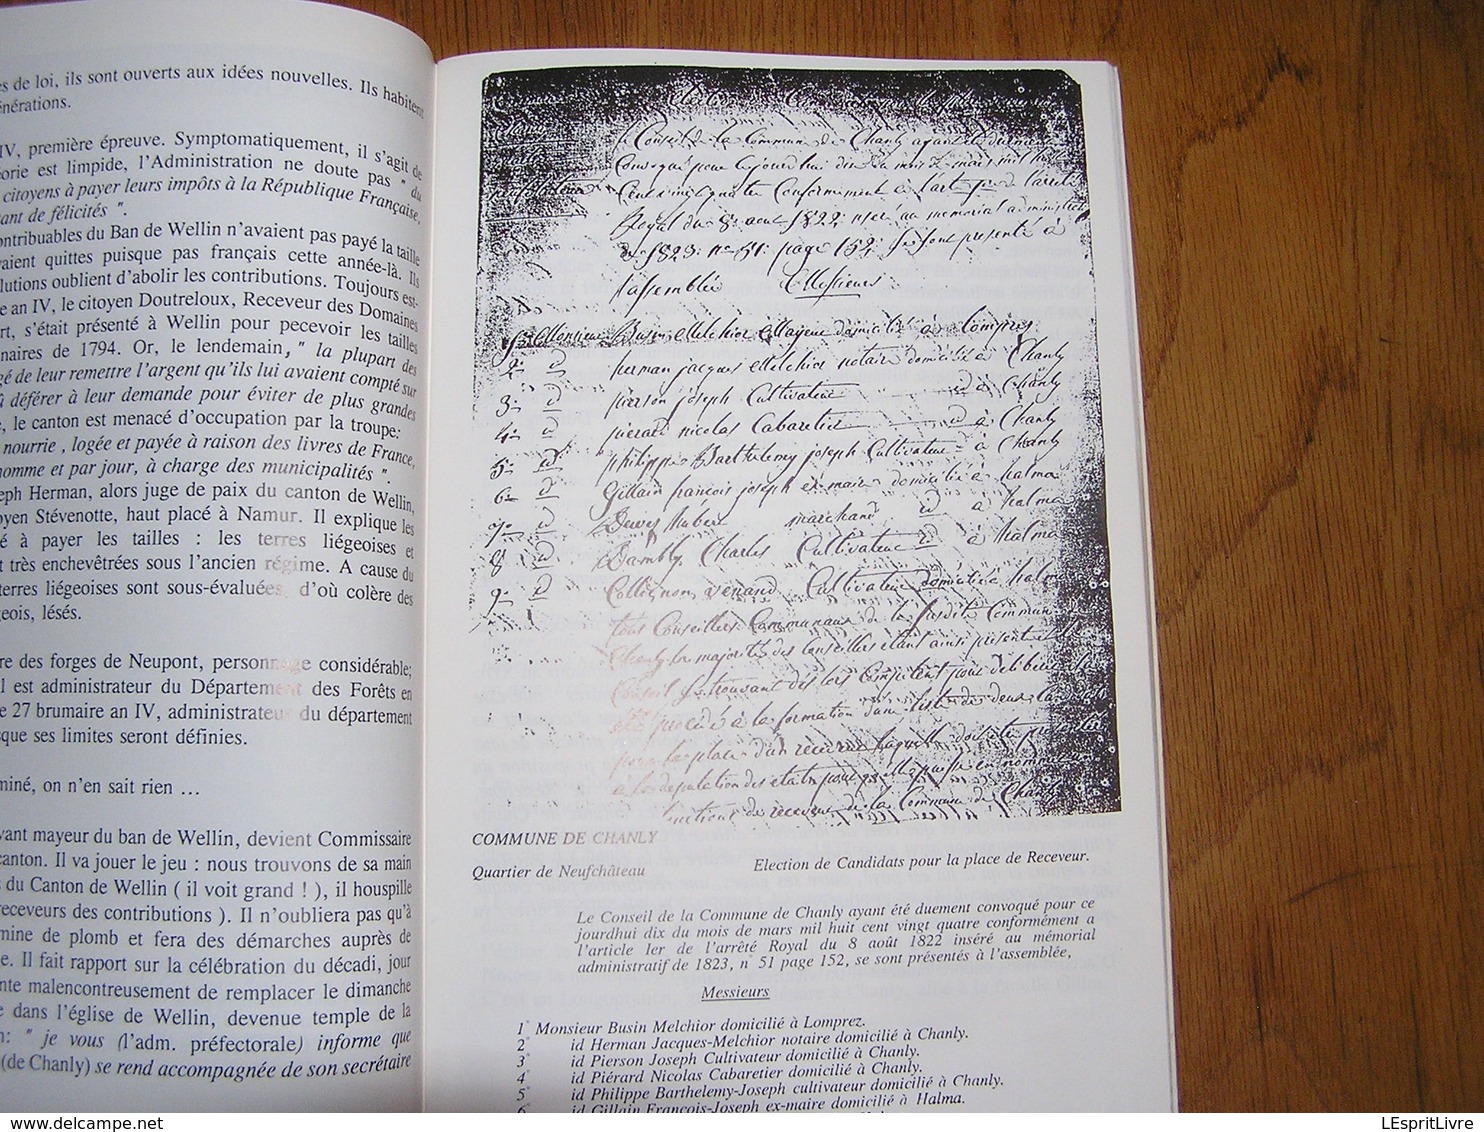 s de loi, ils sont ouverts aux idées nouvelles. Ils habitent
énérations.
IV, première épreuve. Symptomatiquement, il s'agit de
orie est limpide, l'Administration ne doute pas " du
citoyens à payer leurs impôts à la République Française,
ant de félicités ".
ontribuables du Ban de Wellin n'avaient pas payé la taille
aient quittes puisque pas français cette année-là. Ils
lutions oublient d'abolir les contributions. Toujours est-
e an IV, le citoyen Doutreloux, Receveur des Domaines
rt, s'était présenté à Wellin pour pecevoir les tailles
naires de 1794. Or, le lendemain, " la plupart des
gé de leur remettre l'argent qu'ils lui avaient compté sur
û déférer à leur demande pour éviter de plus grandes
e, le canton est menacé d'occupation par la troupe:
nourrie , logée et payée à raison des livres de France,
homme et par jour, à charge des municipalités ".
eph Herman, alors juge de paix du canton de Wellin,
oyen Stévenotte, haut placé à Namur. Il explique les
é à payer les tailles : les terres liégeoises et
t très enchevêtrées sous l'ancien régime. A cause du
terres liégeoises sont sous-évaluées, d'où colère des
geois, lésés.
re des forges de Neupont, personnage considérable;
l est administrateur du Département des Forêts en
e 27 brumaire an IV, administrateur du département
sque ses limites seront définies.
miné, on n'en sait rien ...
vant mayeur du ban de Wellin, devient Commissaire
canton. Il va jouer le jeu : nous trouvons de sa main
s du Canton de Wellin ( il voit grand ! ), il houspille
receveurs des contributions ). Il n'oubliera pas qu'à
mine de plomb et fera des démarches auprès de
e. Il fait rapport sur la célébration du décadi, jour
nte malencontreusement de remplacer le dimanche
e dans l'église de Wellin, devenue temple de la
n: " je vous (l'adm. préfectorale) informe que
(de Chanly) se rend accompagnée de son secrétaire
Conseil de la Commune de Chanly ayant été dument
Convoqué pour ce jourdhui dix du mois de mars mil huit
Cent vingt quatre Conformement à l'art 1er de l'arrêté
Royal du 8 aout 1822 inseré au memorial administratif
de 1823 n° 51 page 152 se sont presenté à
l'assemblée Messieurs
1° Monsieur Busin Melchior Mayeur domicilié à Lomprez
2° id herman jacques Melchior notaire domicilié à Chanly
3° id pierson joseph Cultivateur id à Chanly
4° id pierard nicolas Cabaretier id à Chanly
5° id philippe Barthelemy joseph Cultivateur id à Chanly
6° id Gillain francois joseph ex maire domicilié à halma
7° id Dewez hubert marchand id à halma
8° id Dambly Charles Cultivateur id à halma
9° id Collignon venand Cultivateur domicilié à halma
tous Conseillers Communaux de la susdite Commune de
Chanly la majorité des Conseillers étant ainsi presents le
Conseil se trouvant dès lors Compétent pour deliberer
été procédé à la formation d'une liste de deux
pour la place d'un receveur laquelle doit être
à la deputation des etats pour qu'elle puisse en nommer
fonctions de receveur de la Commune de Chanly
COMMUNE DE CHANLY
Quartier de Neufchâteau Election de Candidats pour la place de Receveur.
Le Conseil de la Commune de Chanly ayant été duement convoqué pour ce
jourdhui dix du mois de mars mil huit cent vingt quatre conformément a
l'article 1er de l'arrêté Royal du 8 août 1822 inséré au mémorial
administratif de 1823, n° 51 page 152, se sont présentés à l'assemblée,
Messieurs
1° Monsieur Busin Melchior domicilié à Lomprez.
2° id Herman Jacques-Melchior notaire domicilié à Chanly.
3° id Pierson Joseph Cultivateur domicilié à Chanly.
4° id Piérard Nicolas Cabaretier domicilié à Chanly.
5° id Philippe Barthelemy-Joseph cultivateur domicilié à Chanly.
6° id Gillain François-Joseph ex-maire domicilié à Halma.
LEspritLivre